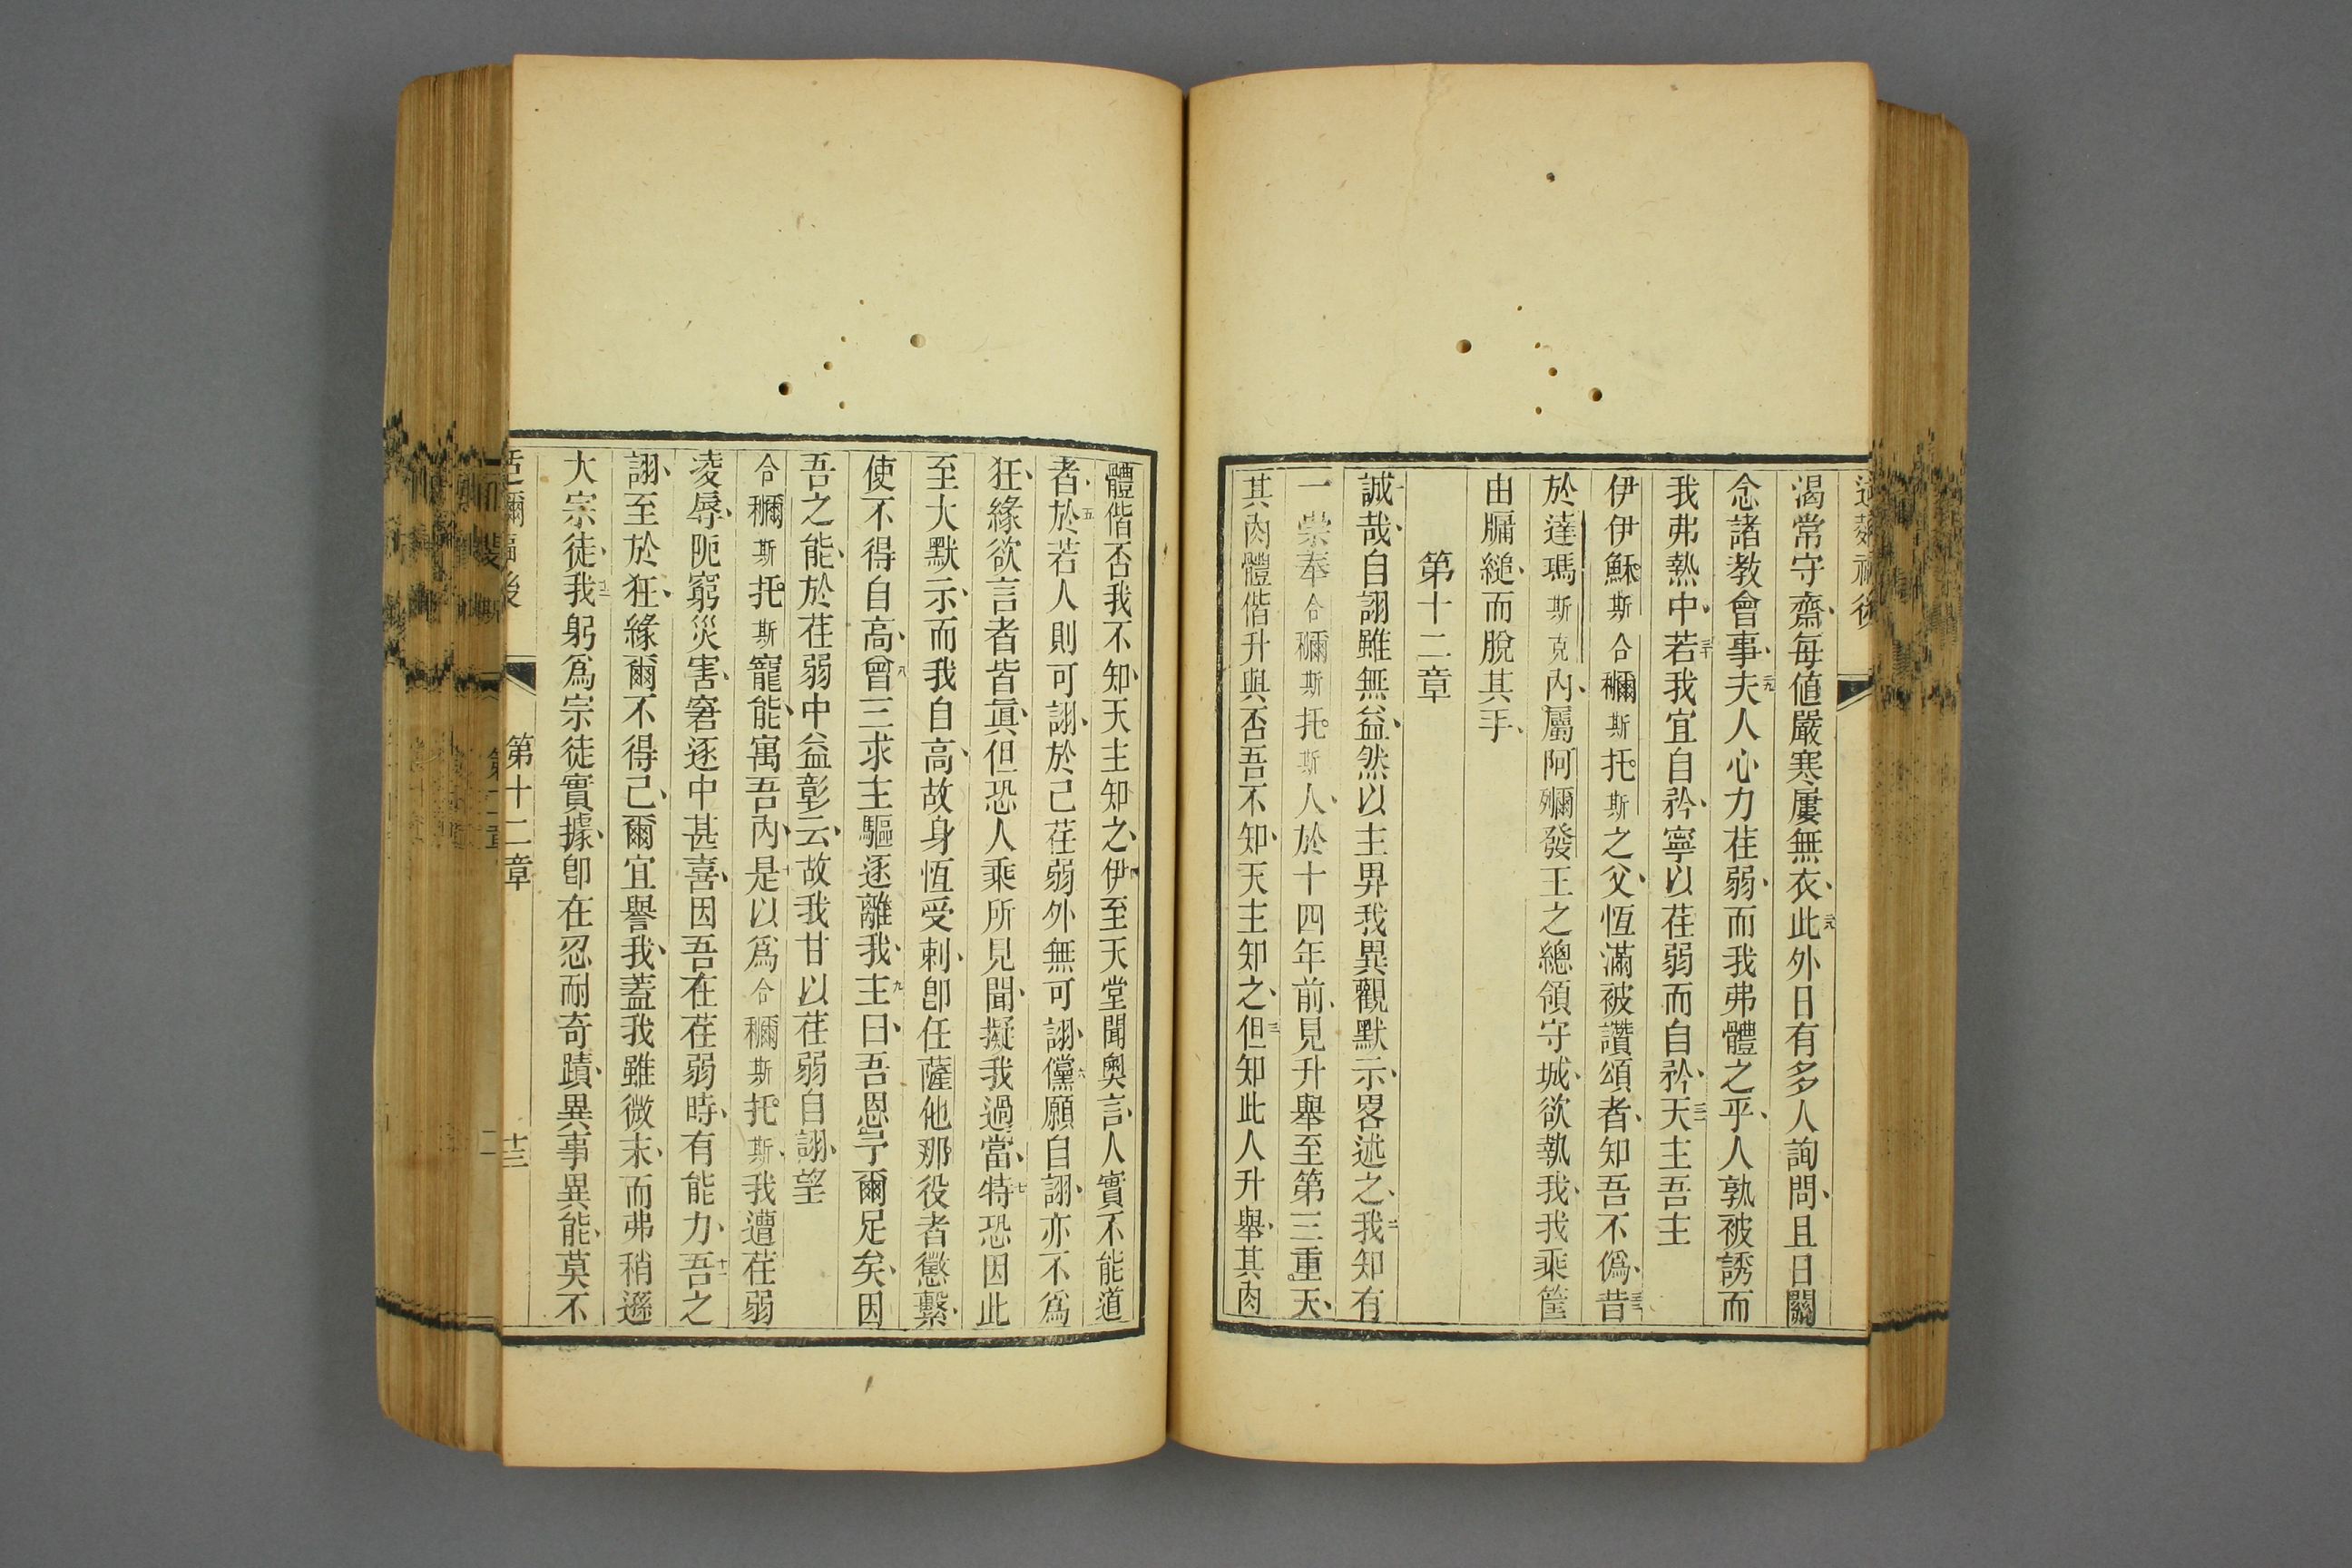 渴常守齋每值嚴寒屢無衣此外日有多人詢問且日關
念諸教會事夫人心力茬弱而我弗體之乎人孰被誘而
我弗熱中若我宜自矜寧以茬弱而自矜天主吾主
伊伊穌斯合穪斯托斯之父恆滿被讚頌者知吾不偽昔
於達瑪斯克內屬阿殢發王之總領守城欲執我我乘筐
由牖縋而脫其手
第十二章
誠哉自詡雖無益然以主畀我異觀默示畧述之我知有
一崇奉合穪斯托斯人於十四年前見升舉至第三重天
其肉體偕升與否吾不知天主知之但知此人升舉其肉
體偕否我不知天主知之伊至天堂聞奧言人實不能道
者於若人則可詡於己茬弱外無可詡儻願自詡亦不為
狂緣欲言者皆眞但恐人乘所見聞擬我過當特恐因此
至大默示而我自高故身恆受刺卽任薩他那役者懲繫
使不得自高曾三求主驅逐離我主曰吾恩予爾足矣因
吾之能於茬弱中益彰云故我甘以茬弱自詡望
合穪斯托斯寵能寓吾內是以為合穪斯托斯我遭茬弱
凌辱阨窮災害窘逐中甚喜因吾在茬弱時有能力吾之
詡至於狂緣爾不得己爾宜譽我蓋我雖微末而弗稍遜
大宗徒我躬爲宗徒實據卽在忍耐奇蹟異事異能莫不
第十二章
十三